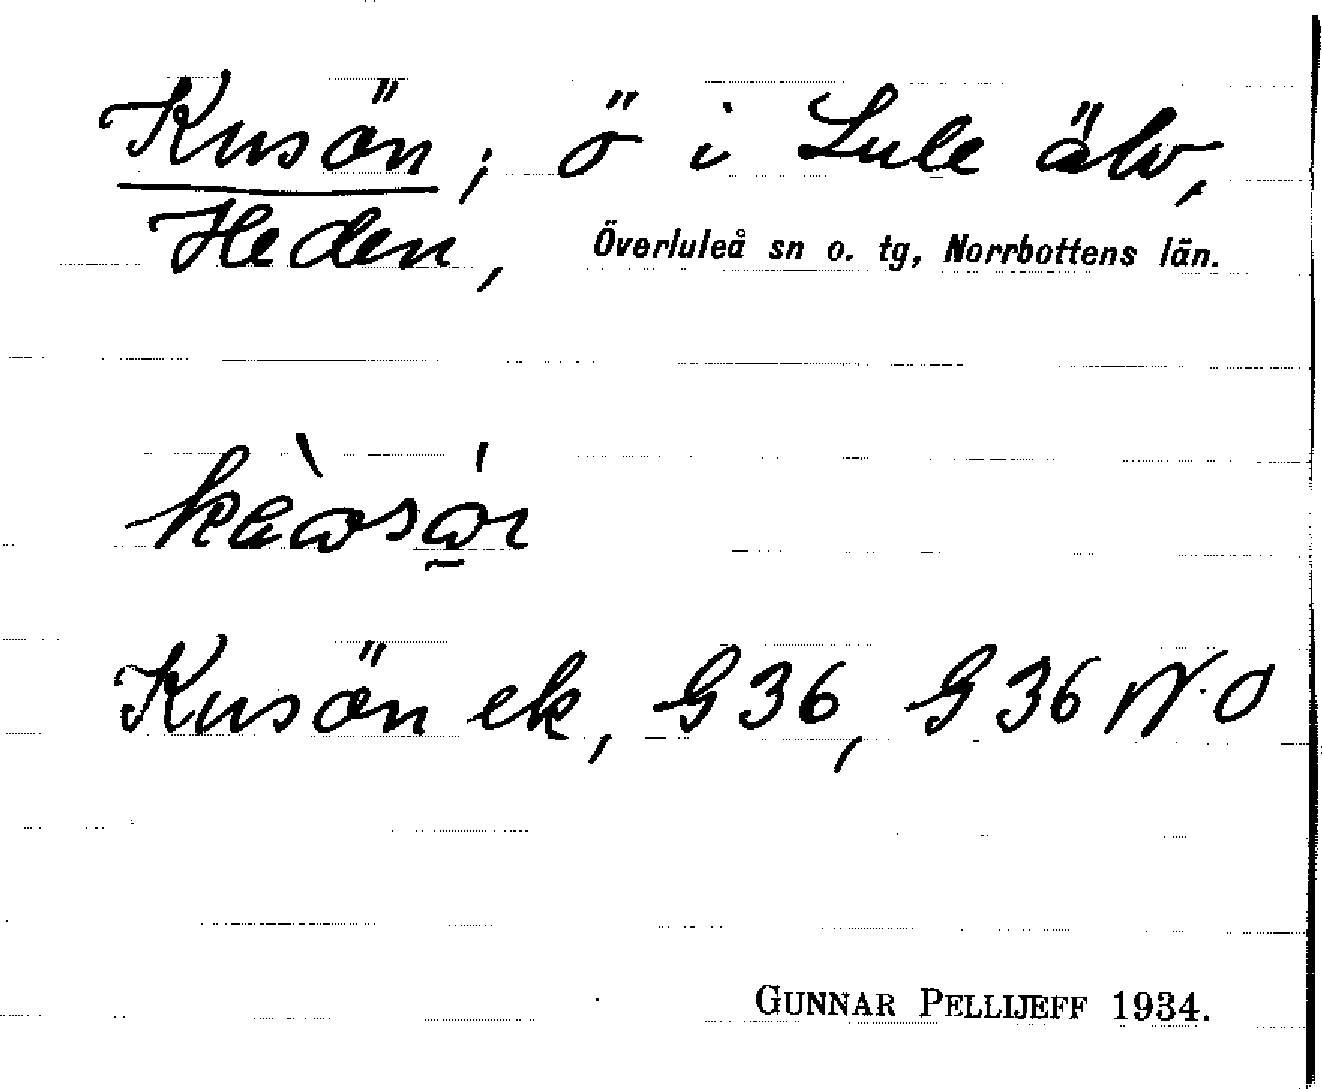 Kusön, ö i Lule älv,
Heden, Överluleå sn o. tg, Norrbottens län.
Kusön ek, G36, G36 N.O
GUNNAR PELLIJEFF 1934.